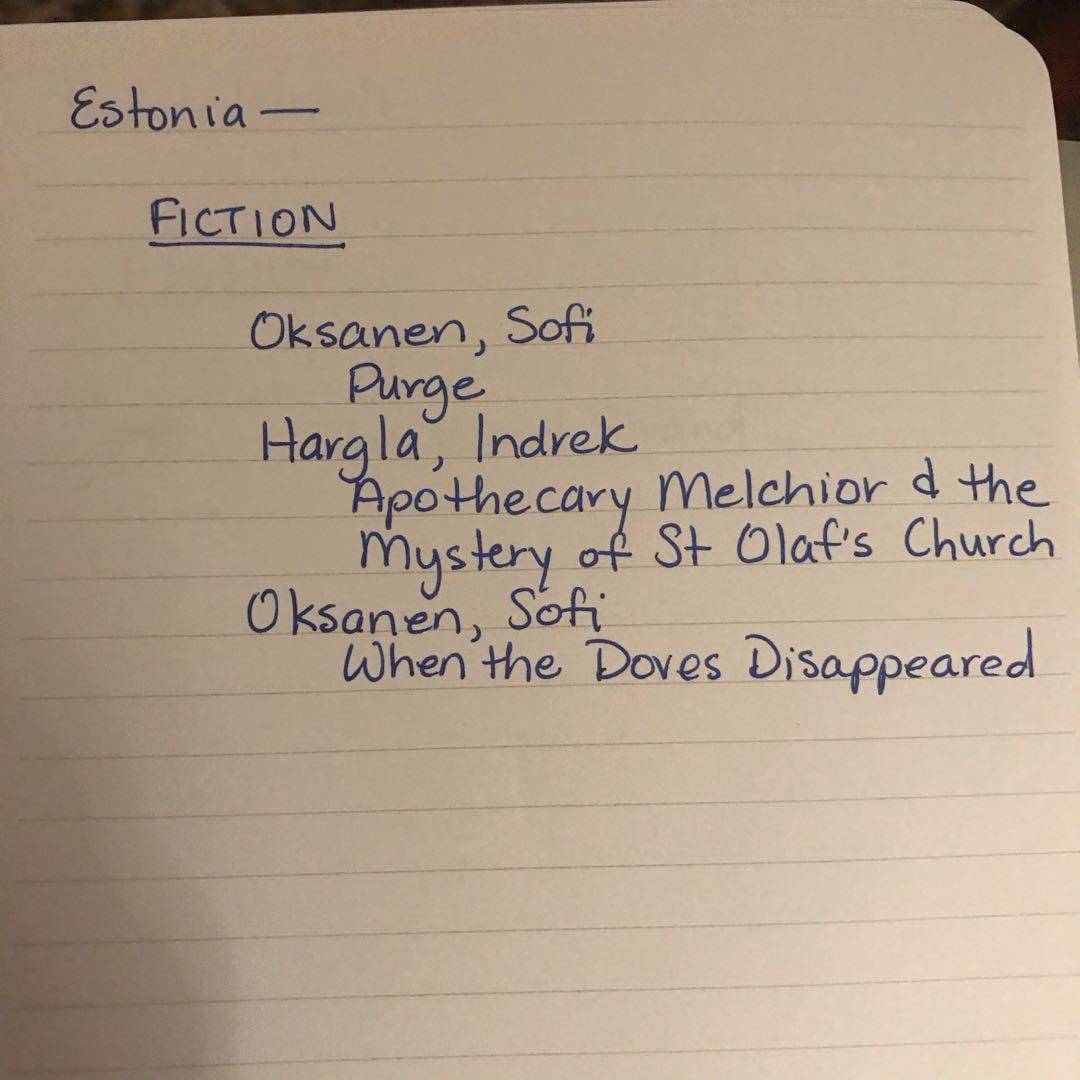 Estonia —
FICTION
Oksanen, Sofi
Purge
Hargla, Indrek
Apothecary Melchior & the
Mystery of St Olaf's Church
Oksanen, Sofi
When the Doves Disappeared